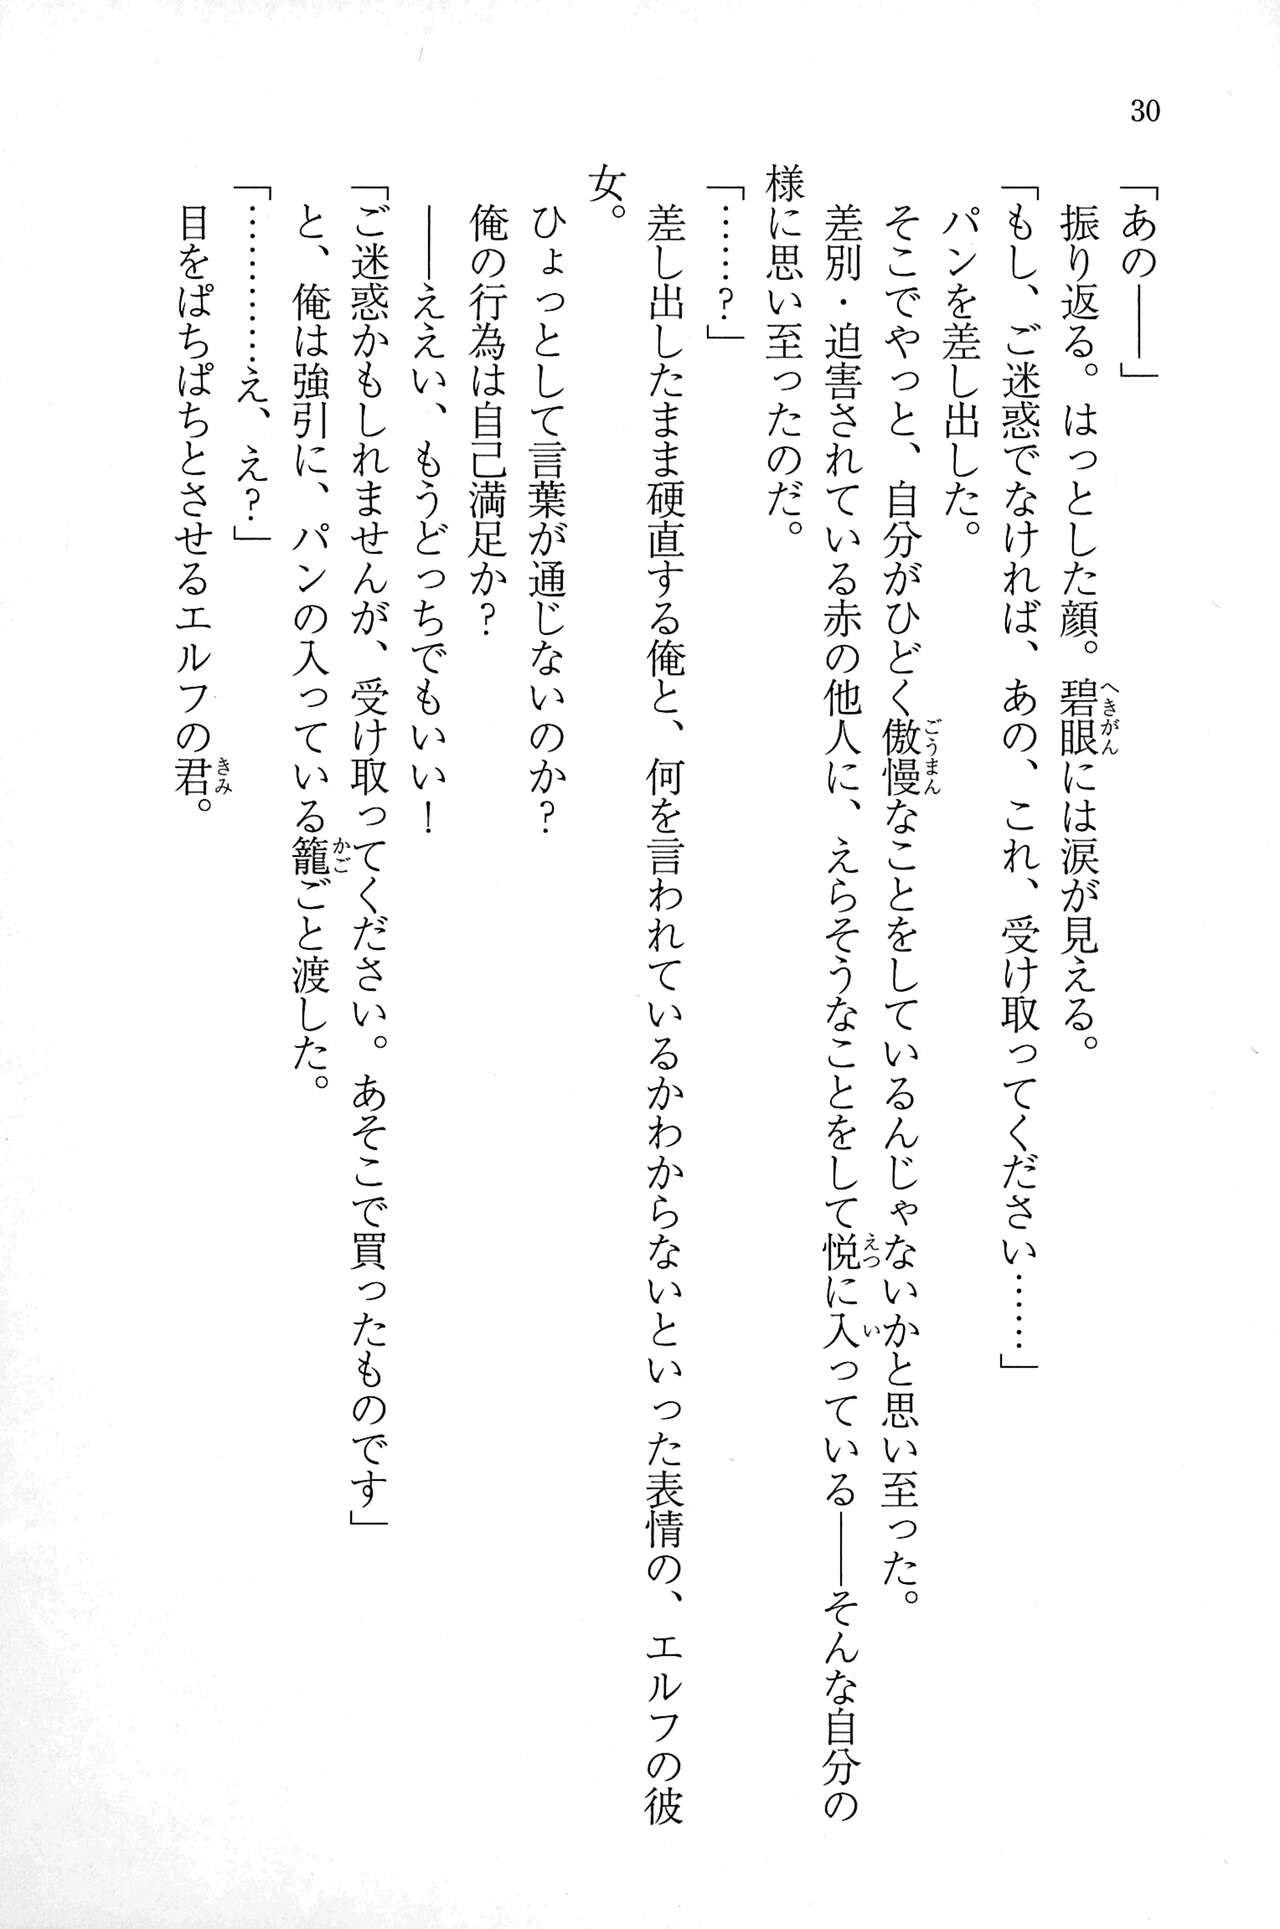 30
「あの――」
振り返る。はっとした顔。碧眼には涙が見える。
「もし、ご迷惑でなければ、あの、これ、受け取ってください……」
パンを差し出した。
そこでやっと、自分がひどく傲慢なことをしているんじゃないかと思い至った。
差別・迫害されている赤の他人に、えらそうなことをして悦に入っている――そんな自分の
様に思い至ったのだ。
「……？」
差し出したまま硬直する俺と、何を言われているかわからないといった表情の、エルフの彼
女。
ひょっとして言葉が通じないのか？
俺の行為は自己満足か？
――ええい、もうどっちでもいい！
「ご迷惑かもしれませんが、受け取ってください。あそこで買ったものです」
と、俺は強引に、パンの入っている籠ごと渡した。
「…………え、え？」
目をぱちぱちとさせるエルフの君。